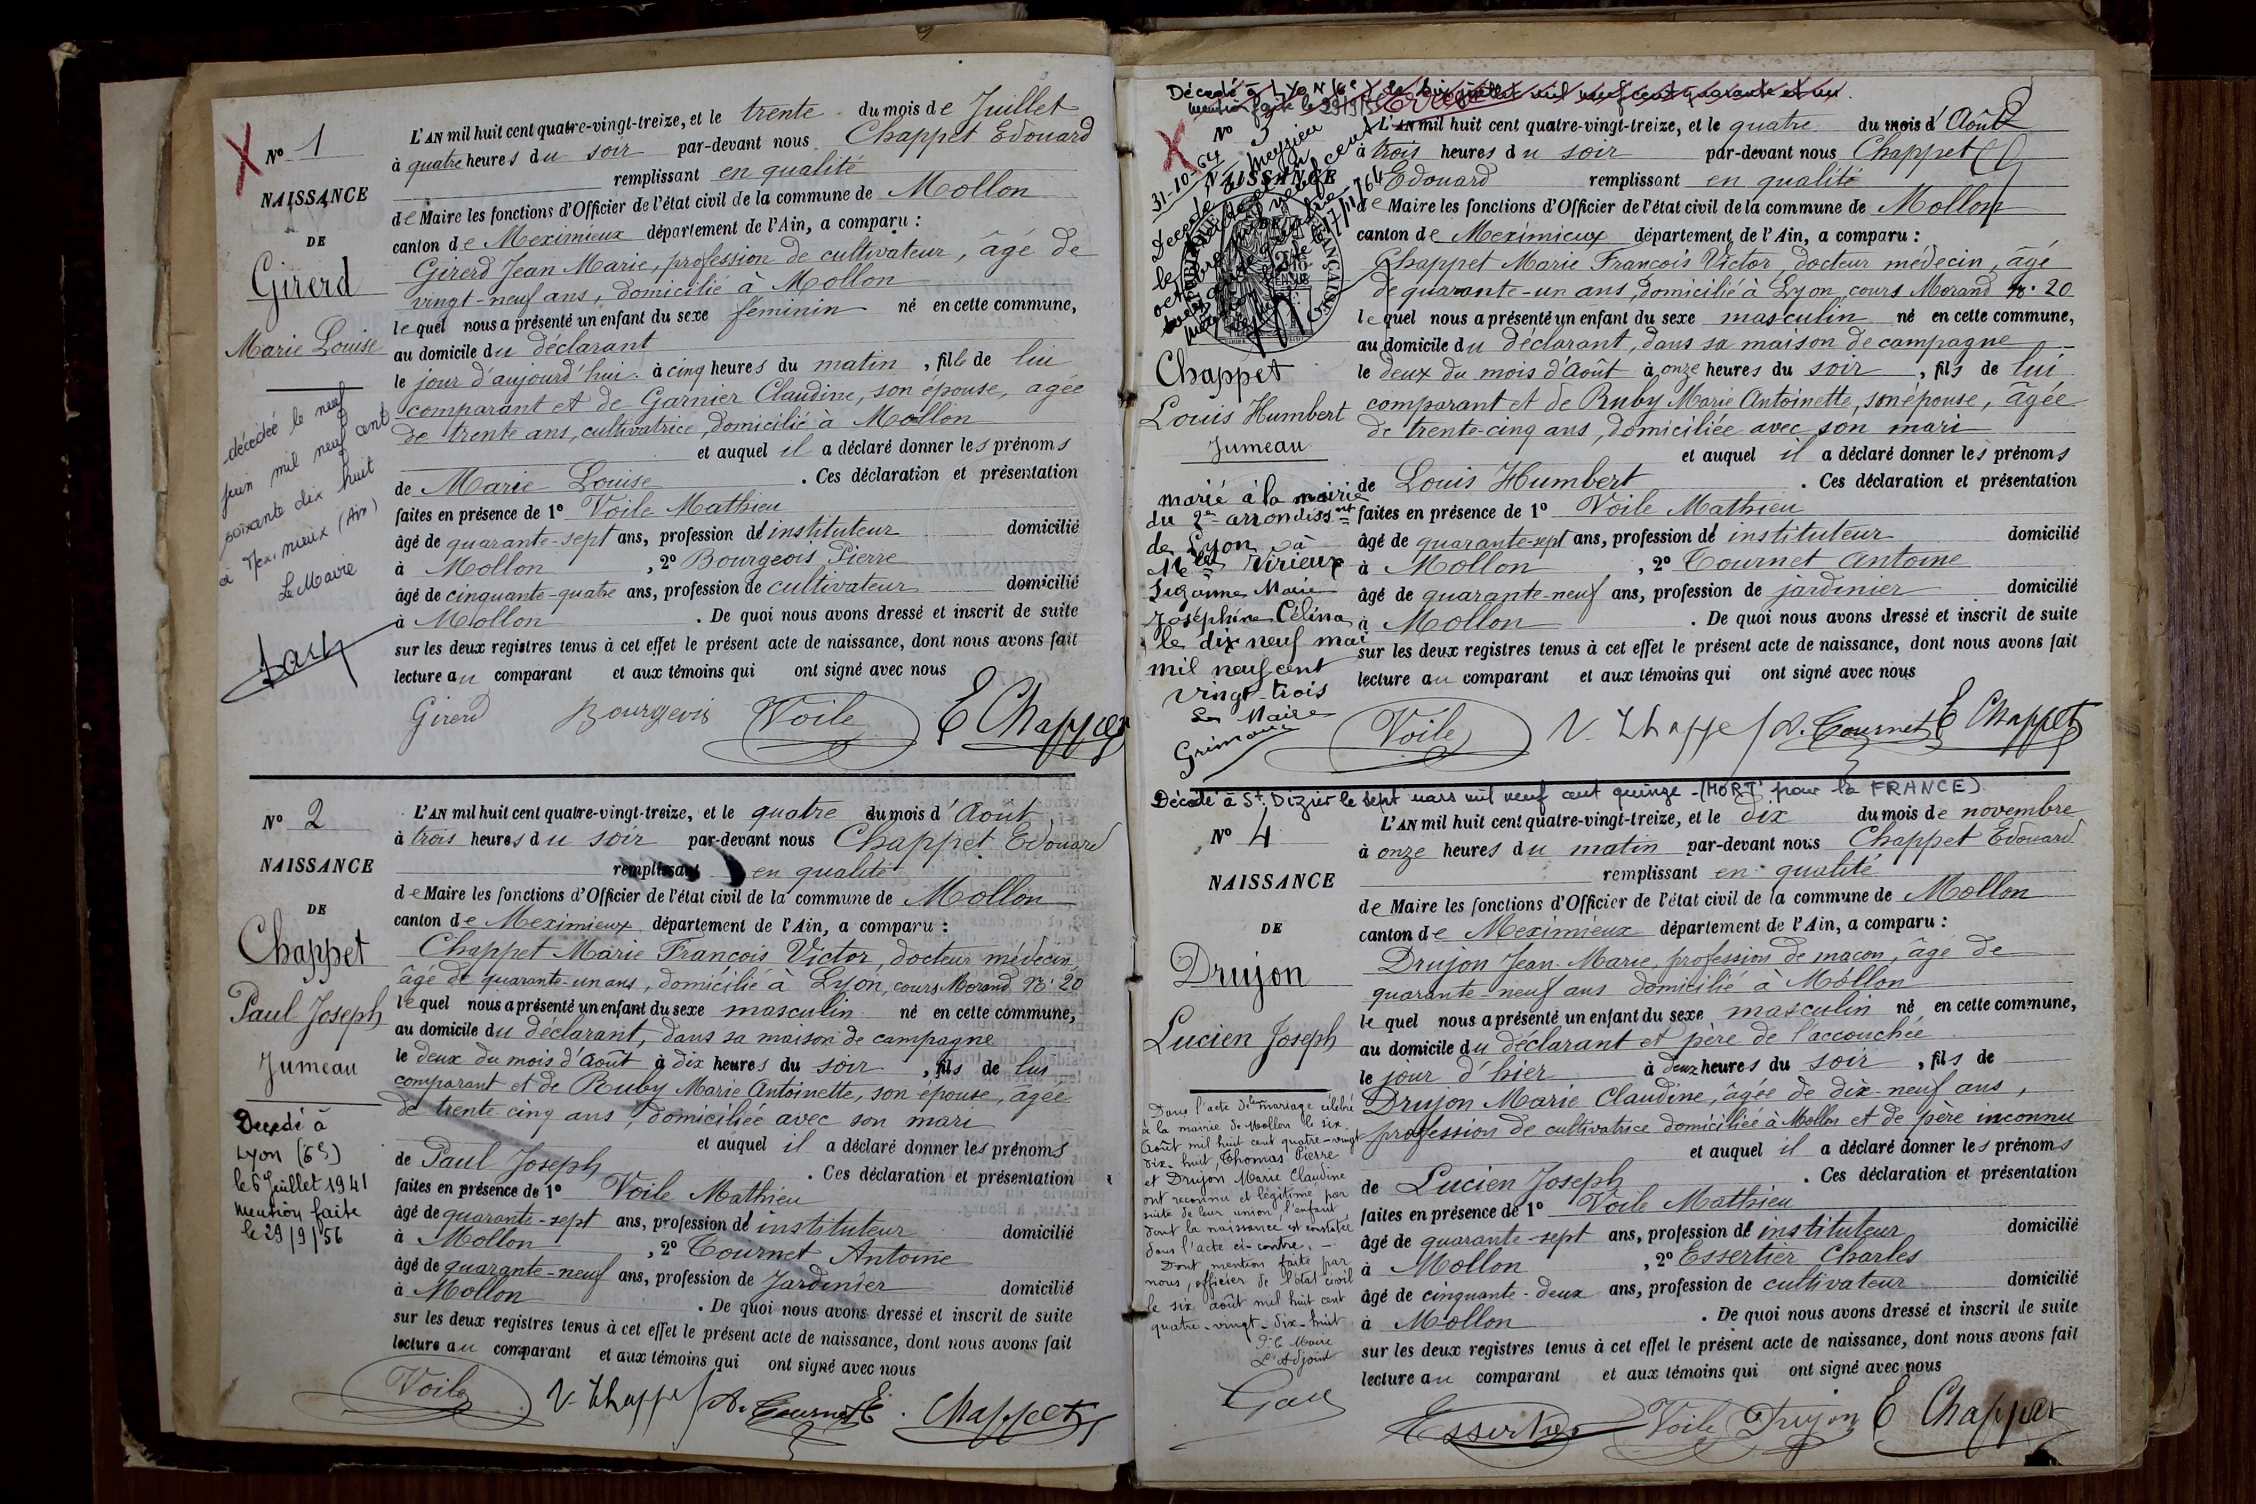 Nº 1
NAISSANCE
DE
Girerd
Marie Louise
décédée le neuf
juin mil neuf cent
soixante dix huit
à Meximieux (Ain)
Le Maire
L'AN mil huit cent quatre-vingt-treize, et le trente du mois de Juillet
à quatre heures du soir par-devant nous Chappet Edouard
remplissant en qualité
de Maire les fonctions d'Officier de l'état civil de la commune de Mollon
canton de Meximieux département de l'Ain, a comparu :
Girerd Jean Marie, profession de cultivateur, âgé de
vingt-neuf ans, domicilié à Mollon
lequel nous a présenté un enfant du sexe féminin né en cette commune,
au domicile du déclarant
le jour d'aujourd'hui à cinq heures du matin, fille de lui
comparant et de Garnier Claudine, son épouse, agée
de trente ans, cultivatrice, domicilié à Mollon
et auquel il a déclaré donner les prénoms
de Marie Louise . Ces déclaration et présentation
faites en présence de 1º Voile Mathieu
âgé de quarante-sept ans, profession d'instituteur domicilié
à Mollon , 2º Bourgeois Pierre
âgé de cinquante-quatre ans, profession de cultivateur domicilié
à Mollon . De quoi nous avons dressé et inscrit de suite
sur les deux registres tenus à cet effet le présent acte de naissance, dont nous avons fait
lecture au comparant et aux témoins qui ont signé avec nous
Girerd Bourgeois Voile E Chappet
Nº 2
NAISSANCE
DE
Chappet
Paul Joseph
Jumeau
Decedé à
Lyon (6e)
le 6 Juillet 1941
mention faite
le 29/9/56
L'AN mil huit cent quatre-vingt-treize, et le quatre du mois d'Aout,
à trois heures du soir par-devant nous Chappet Edouard
remplissant en qualité
de Maire les fonctions d'Officier de l'état civil de la commune de Mollon
canton de Meximieux département de l'Ain, a comparu :
Chappet Marie François Victor, docteur médecin
âgé de quarante-un ans, domicilié à Lyon, cours Morand Nº 20
lequel nous a présenté un enfant du sexe masculin né en cette commune,
au domicile du déclarant, dans sa maison de campagne
le deux du mois d'Août à dix heures du soir, fils de lui
comparant et de Ruby Marie Antoinette, son épouse, âgée
de trente cinq ans, domiciliée avec son mari
et auquel il a déclaré donner les prénoms
de Paul Joseph . Ces déclaration et présentation
faites en présence de 1º Voile Mathieu
âgé de quarante-sept ans, profession d'instituteur domicilié
à Mollon , 2º Tournet Antoine
âgé de quarante-neuf ans, profession de Jardinier domicilié
à Mollon . De quoi nous avons dressé et inscrit de suite
sur les deux registres tenus à cet effet le présent acte de naissance, dont nous avons fait
lecture au comparant et aux témoins qui ont signé avec nous
Voile V. Chappet A. Tournet E. Chappet
Décédé à LYON (6e) le six juillet mil neuf cent quarante et un.
mention faite le 29/9/56
Nº 3
NAISSANCE
31-10-64
Chappet
Louis Humbert
Jumeau
marié à la mairie
du 2e arrondissnt
de Lyon à
Melle Virieux
Suzanne Marie
Joséphine Célina
le dix neuf mai
mil neuf cent
vingt-trois
Le Maire
L'AN mil huit cent quatre-vingt-treize, et le quatre du mois d'Août
à trois heures du soir par-devant nous Chappet
Edouard remplissant en qualité
de Maire les fonctions d'Officier de l'état civil de la commune de Mollon
canton de Meximieux département de l'Ain, a comparu :
Chappet Marie François Victor, docteur médecin, âgé
de quarante-un ans, domicilié à Lyon, cours Morand Nº 20
lequel nous a présenté un enfant du sexe masculin né en cette commune,
au domicile du déclarant, dans sa maison de campagne
le deux du mois d'Août à onze heures du soir, fils de lui
comparant et de Ruby Marie Antoinette, son épouse, âgée
de trente-cinq ans, domiciliée avec son mari
et auquel il a déclaré donner les prénoms
de Louis Humbert . Ces déclaration et présentation
faites en présence de 1º Voile Mathieu
âgé de quarante-sept ans, profession d'instituteur domicilié
à Mollon , 2º Tournet Antoine
âgé de quarante-neuf ans, profession de jardinier domicilié
à Mollon . De quoi nous avons dressé et inscrit de suite
sur les deux registres tenus à cet effet le présent acte de naissance, dont nous avons fait
lecture au comparant et aux témoins qui ont signé avec nous
Voile V. Chappet A. Tournet E Chappet
Décédé à St. Dizier le sept mars mil neuf cent quinze - (MORT pour la FRANCE)
Nº 4
NAISSANCE
DE
Drujon
Lucien Joseph
Dans l'acte de mariage célébré
à la mairie de Mollon le six
Août mil huit cent quatre-vingt
dix-huit, Thomas Pierre
et Drujon Marie Claudine
ont reconnu et légitimé par
suite de leur union, l'enfant
dont la naissance est constatée
dans l'acte ci-contre. -
Dont mention faite par
nous, officier de l'état civil
le six août mil huit cent
quatre-vingt-dix-huit
Pr le Maire
L'Adjoint
L'AN mil huit cent quatre-vingt-treize, et le dix du mois de novembre
à onze heures du matin par-devant nous Chappet Edouard
remplissant en qualité
de Maire les fonctions d'Officier de l'état civil de la commune de Mollon
canton de Meximieux département de l'Ain, a comparu :
Drujon Jean-Marie, profession de maçon, âgé de
quarante-neuf ans domicilié à Mollon
lequel nous a présenté un enfant du sexe masculin né en cette commune,
au domicile du déclarant et père de l'accouchée
le jour d'hier à deux heures du soir, fils de
Drujon Marie Claudine, âgée de dix-neuf ans,
profession de cultivatrice domiciliée à Mollon et de père inconnu
et auquel il a déclaré donner les prénoms
de Lucien Joseph . Ces déclaration et présentation
faites en présence de 1º Voile Mathieu
âgé de quarante-sept ans, profession d'instituteur domicilié
à Mollon , 2º Essertier Charles
âgé de cinquante-deux ans, profession de cultivateur domicilié
à Mollon . De quoi nous avons dressé et inscrit de suite
sur les deux registres tenus à cet effet le présent acte de naissance, dont nous avons fait
lecture au comparant et aux témoins qui ont signé avec nous
Essertier Voile Drujon E Chappet